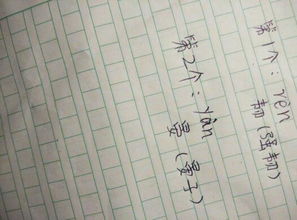 第1个：rèn
韧（强韧）
第2个：yàn
晏（晏子）